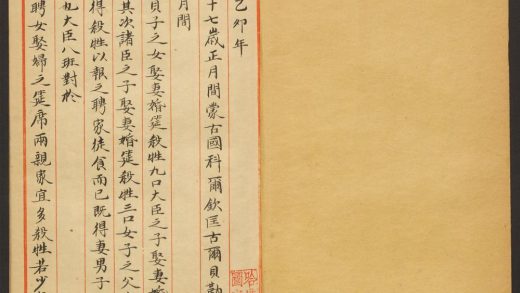 乙卯年
十七歲正月間蒙古國科爾欽匡古爾貝勒
月間
貝子之女娶妻婚筵殺牲九口大臣之子娶妻婚
其次諸臣之子娶妻婚筵殺牲三口女子之父
得殺牲以報之聘家徒食而已既得妻男子
九大臣八班對於
聘女娶婦之筵席兩親家宜多殺牲若少